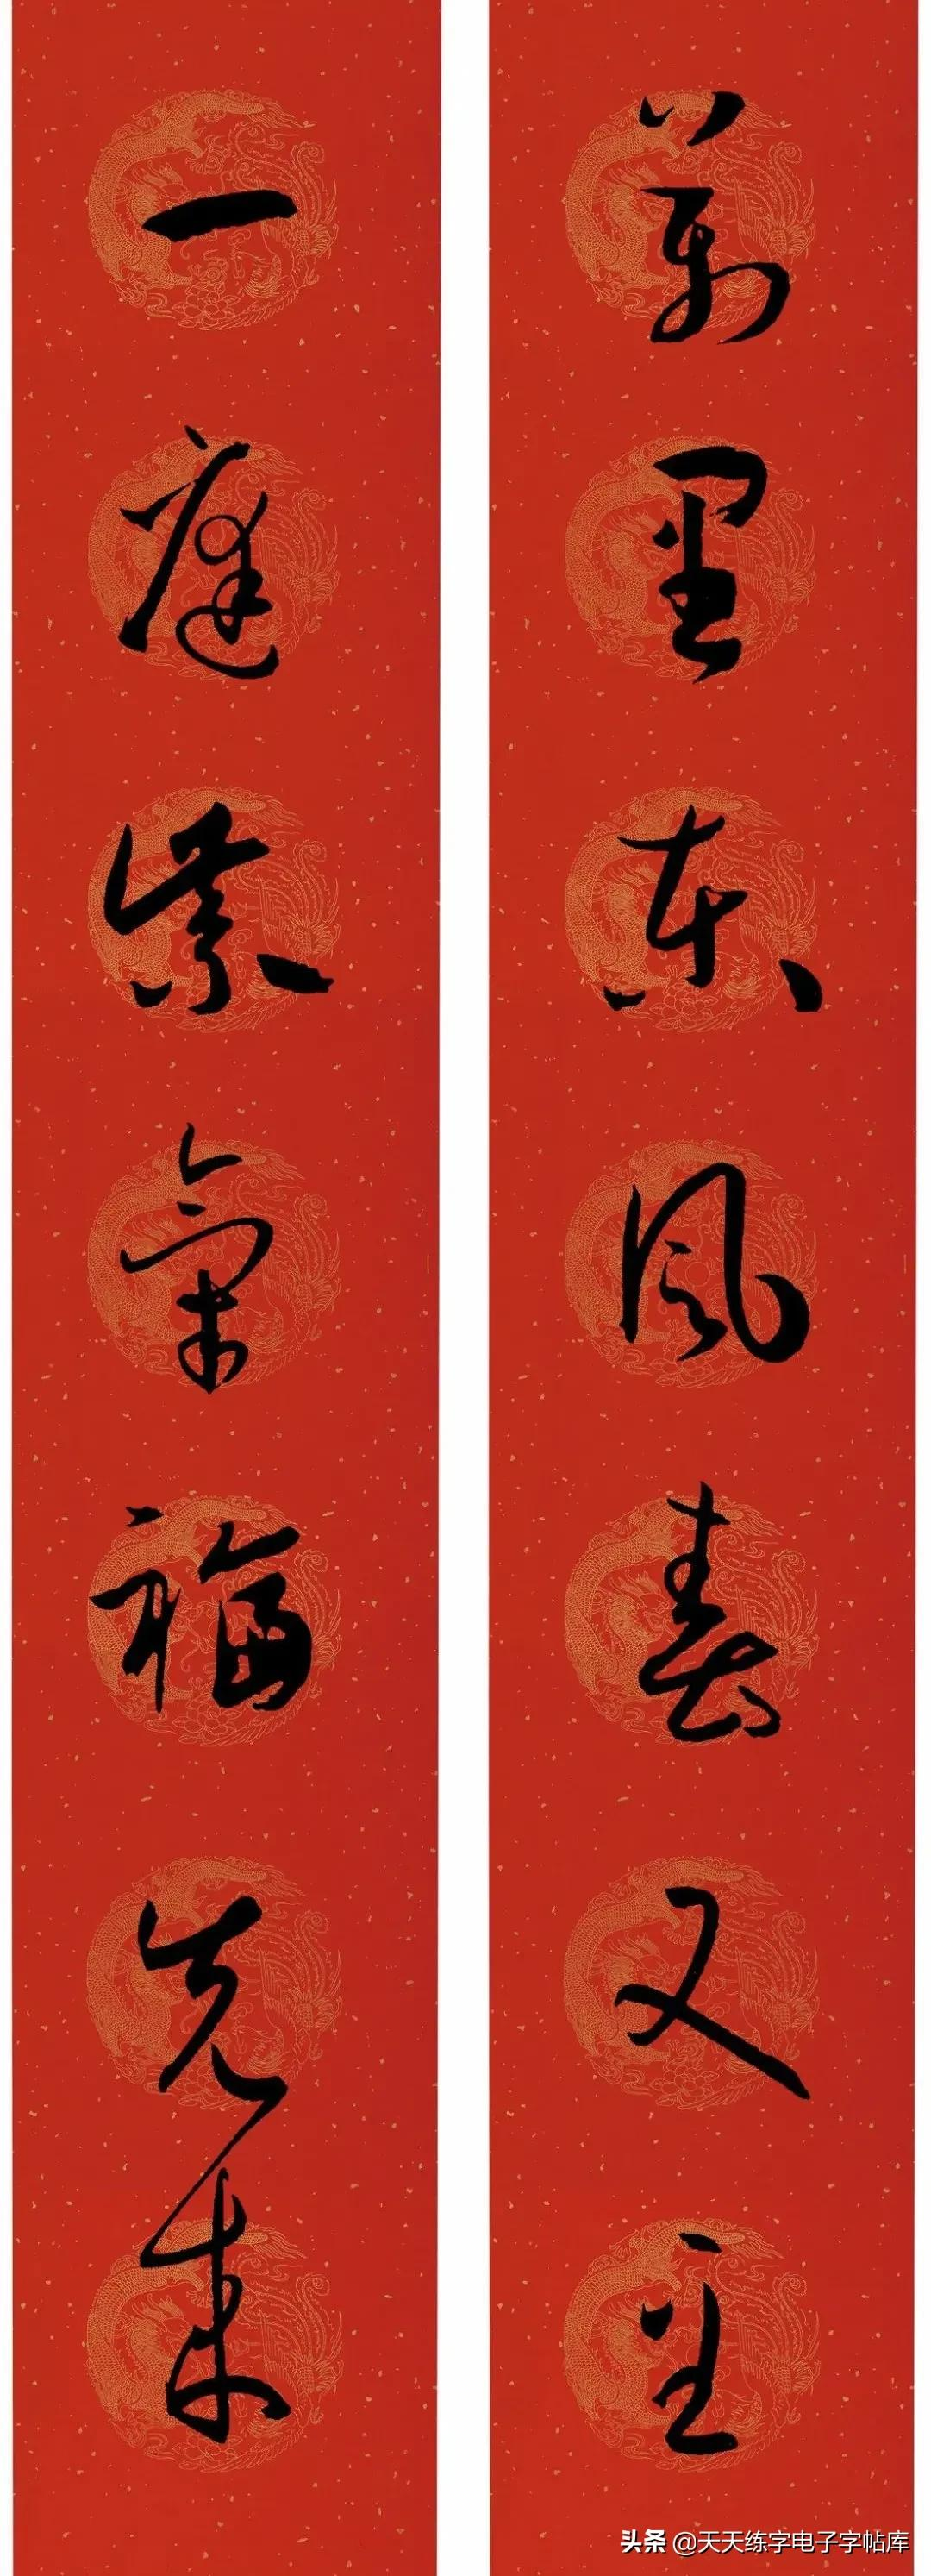 萬里東風春又至
一庭紫氣福先来
头条 @天天练字电子字帖库